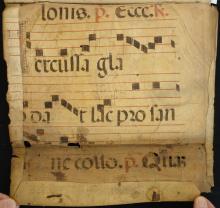 lonis. p. Ecce. R.
ercussa gla
o da t lac pro san
ne collo. p. Quar